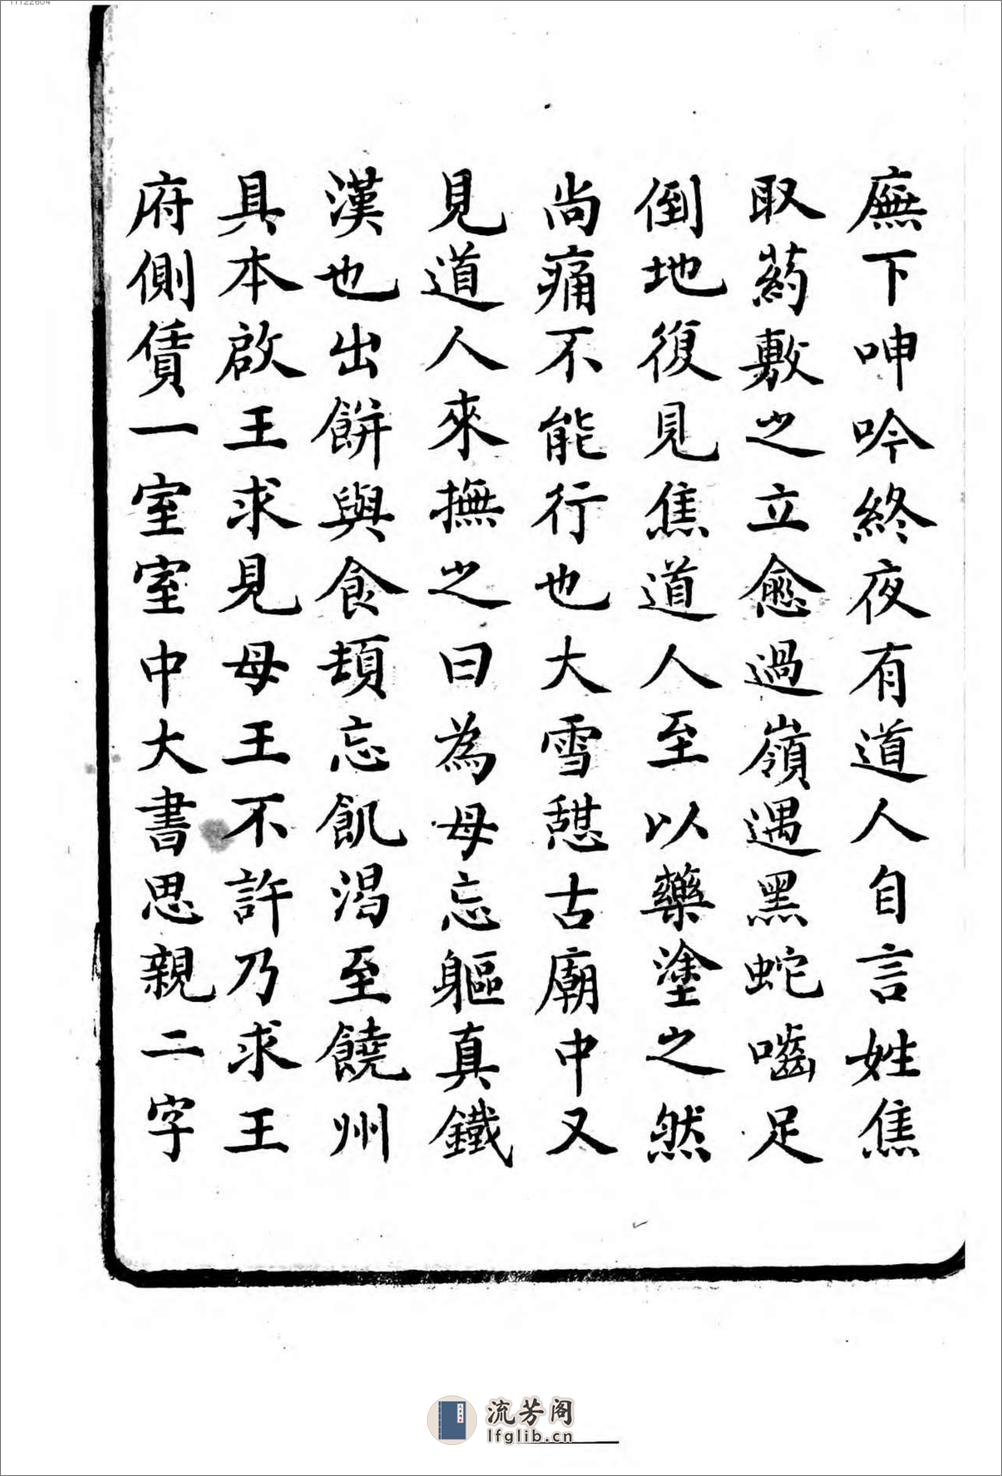 廡下呻吟終夜有道人自言姓焦
取葯敷之立愈過嶺遇黑蛇嚙足
倒地復見焦道人至以藥塗之然
尚痛不能行也大雪憇古廟中又
見道人來撫之曰為母忘軀真鐵
漢也出餅與食頓忘飢渴至饒州
具本啟王求見母王不許乃求王
府側賃一室室中大書思親二字
流芳阁
lfglib.cn